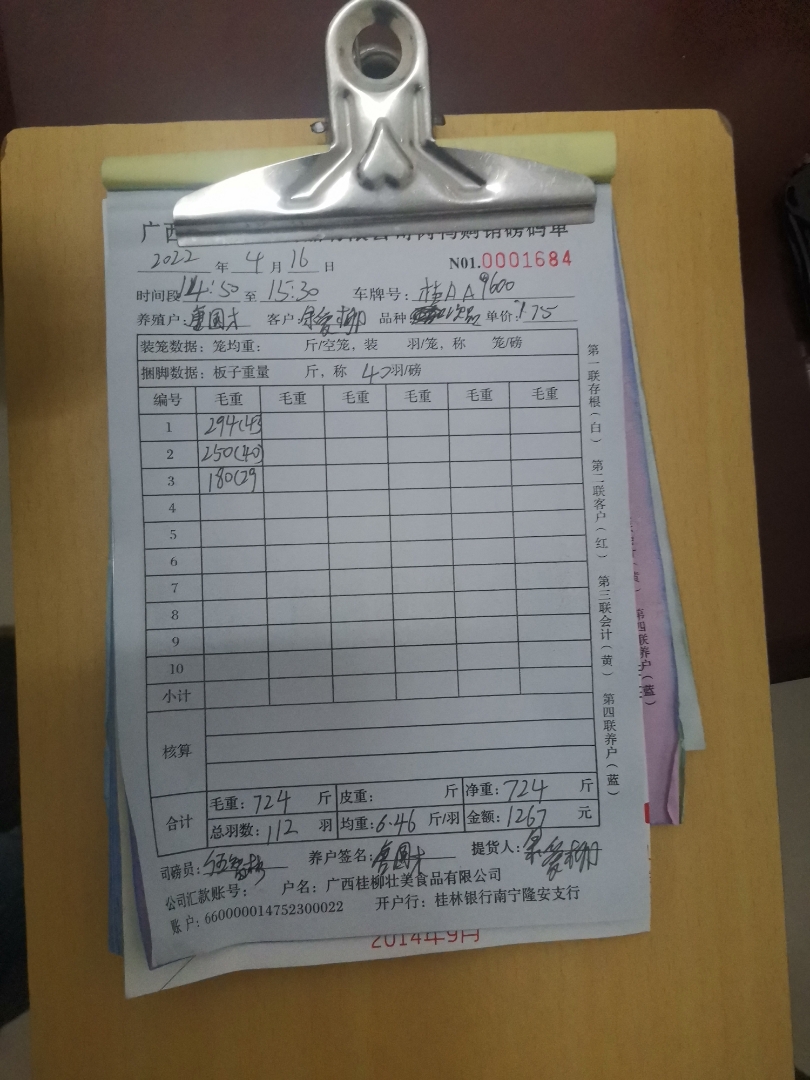 广西
2022 年 4 月 16 日 N01.0001684
时间段 14:50 至 15:30 车牌号: 桂AA9600
养殖户: 国 客户: 爱柳 品种 次品 单价: 1.75
装笼数据: 笼均重: 斤/空笼, 装 羽/笼, 称 笼/磅
捆脚数据: 板子重量 斤, 称 40 羽/磅
编号 毛重 毛重 毛重 毛重 毛重 毛重
1 294(43
2 250(40)
3 180(29
4
5
6
7
8
9
10
小计
核算
合计 毛重: 724 斤 皮重: 斤 净重: 724 斤
总羽数: 112 羽 均重: 6.46 斤/羽 金额: 1267 元
司磅员: 养户签名: 国 提货人: 爱柳
公司汇款账号: 户名: 广西桂柳壮美食品有限公司
账户: 660000014752300022 开户行: 桂林银行南宁隆安支行
第一联存根(白) 第二联客户(红) 第三联会计(黄) 第四联养户(蓝)
第四联养户(蓝)
2014年9月